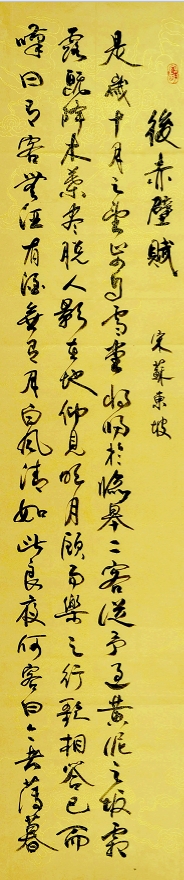 後赤壁賦
宋蘇東坡
是歲十月之望步自雪堂將歸於臨皋二客從予過黃泥之坂霜
露既降木葉盡脫人影在地仰見明月顧而樂之行歌相答已而
嘆曰有客無酒有酒無肴月白風清如此良夜何客曰今者薄暮